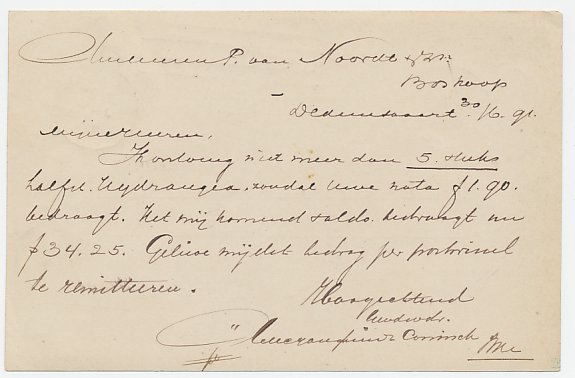 P. van Noordt & Zn
Boskoop
Dedemsvaart 30/6 91.
Mijneheeren,
Ik ontving niet meer dan 5. stuks
halfst. Hydrangea, zoodat Uwe nota f 1.90.
bedraagt. Het mij komend saldo bedraagt nu
f 34.25. Gelieve mij dit bedrag per postwissel
te remitteeren.
Hoogachtend
Uwdwdr.